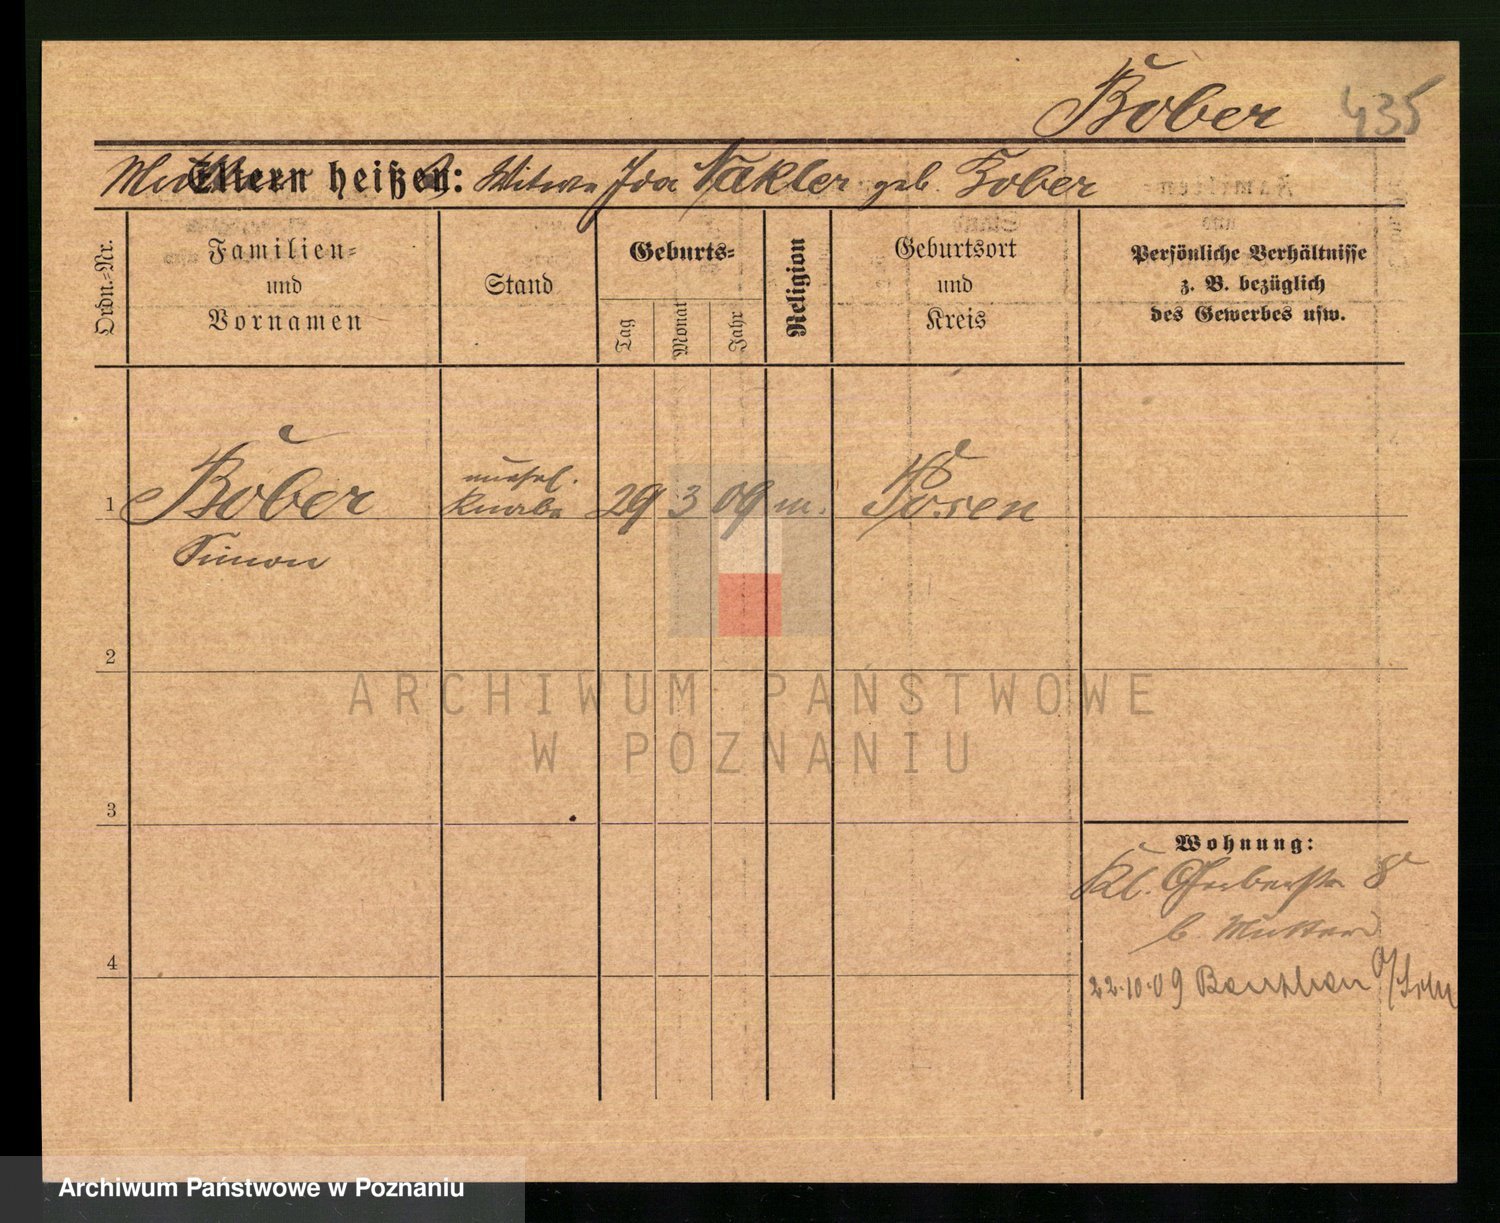 Bober 435
Mutter Eltern heißen: Witwe Ida Nakler geb Bober
Ordn.-Nr.
Familien-
und
Vornamen
Stand
Geburts-
Tag
Monat
Jahr
Religion
Geburtsort
und
Kreis
Persönliche Verhältnisse
z. B. bezüglich
des Gewerbes usw.
1 Bober unehl. Knabe 29 3 09 m. Posen
Simon
2
ARCHIWUM PAŃSTWOWE
W POZNANIU
3
Wohnung:
Kl. Gerberstr 8
b. Mutter
4
22.10.09 Beuthen O/Schl
Archiwum Państwowe w Poznaniu